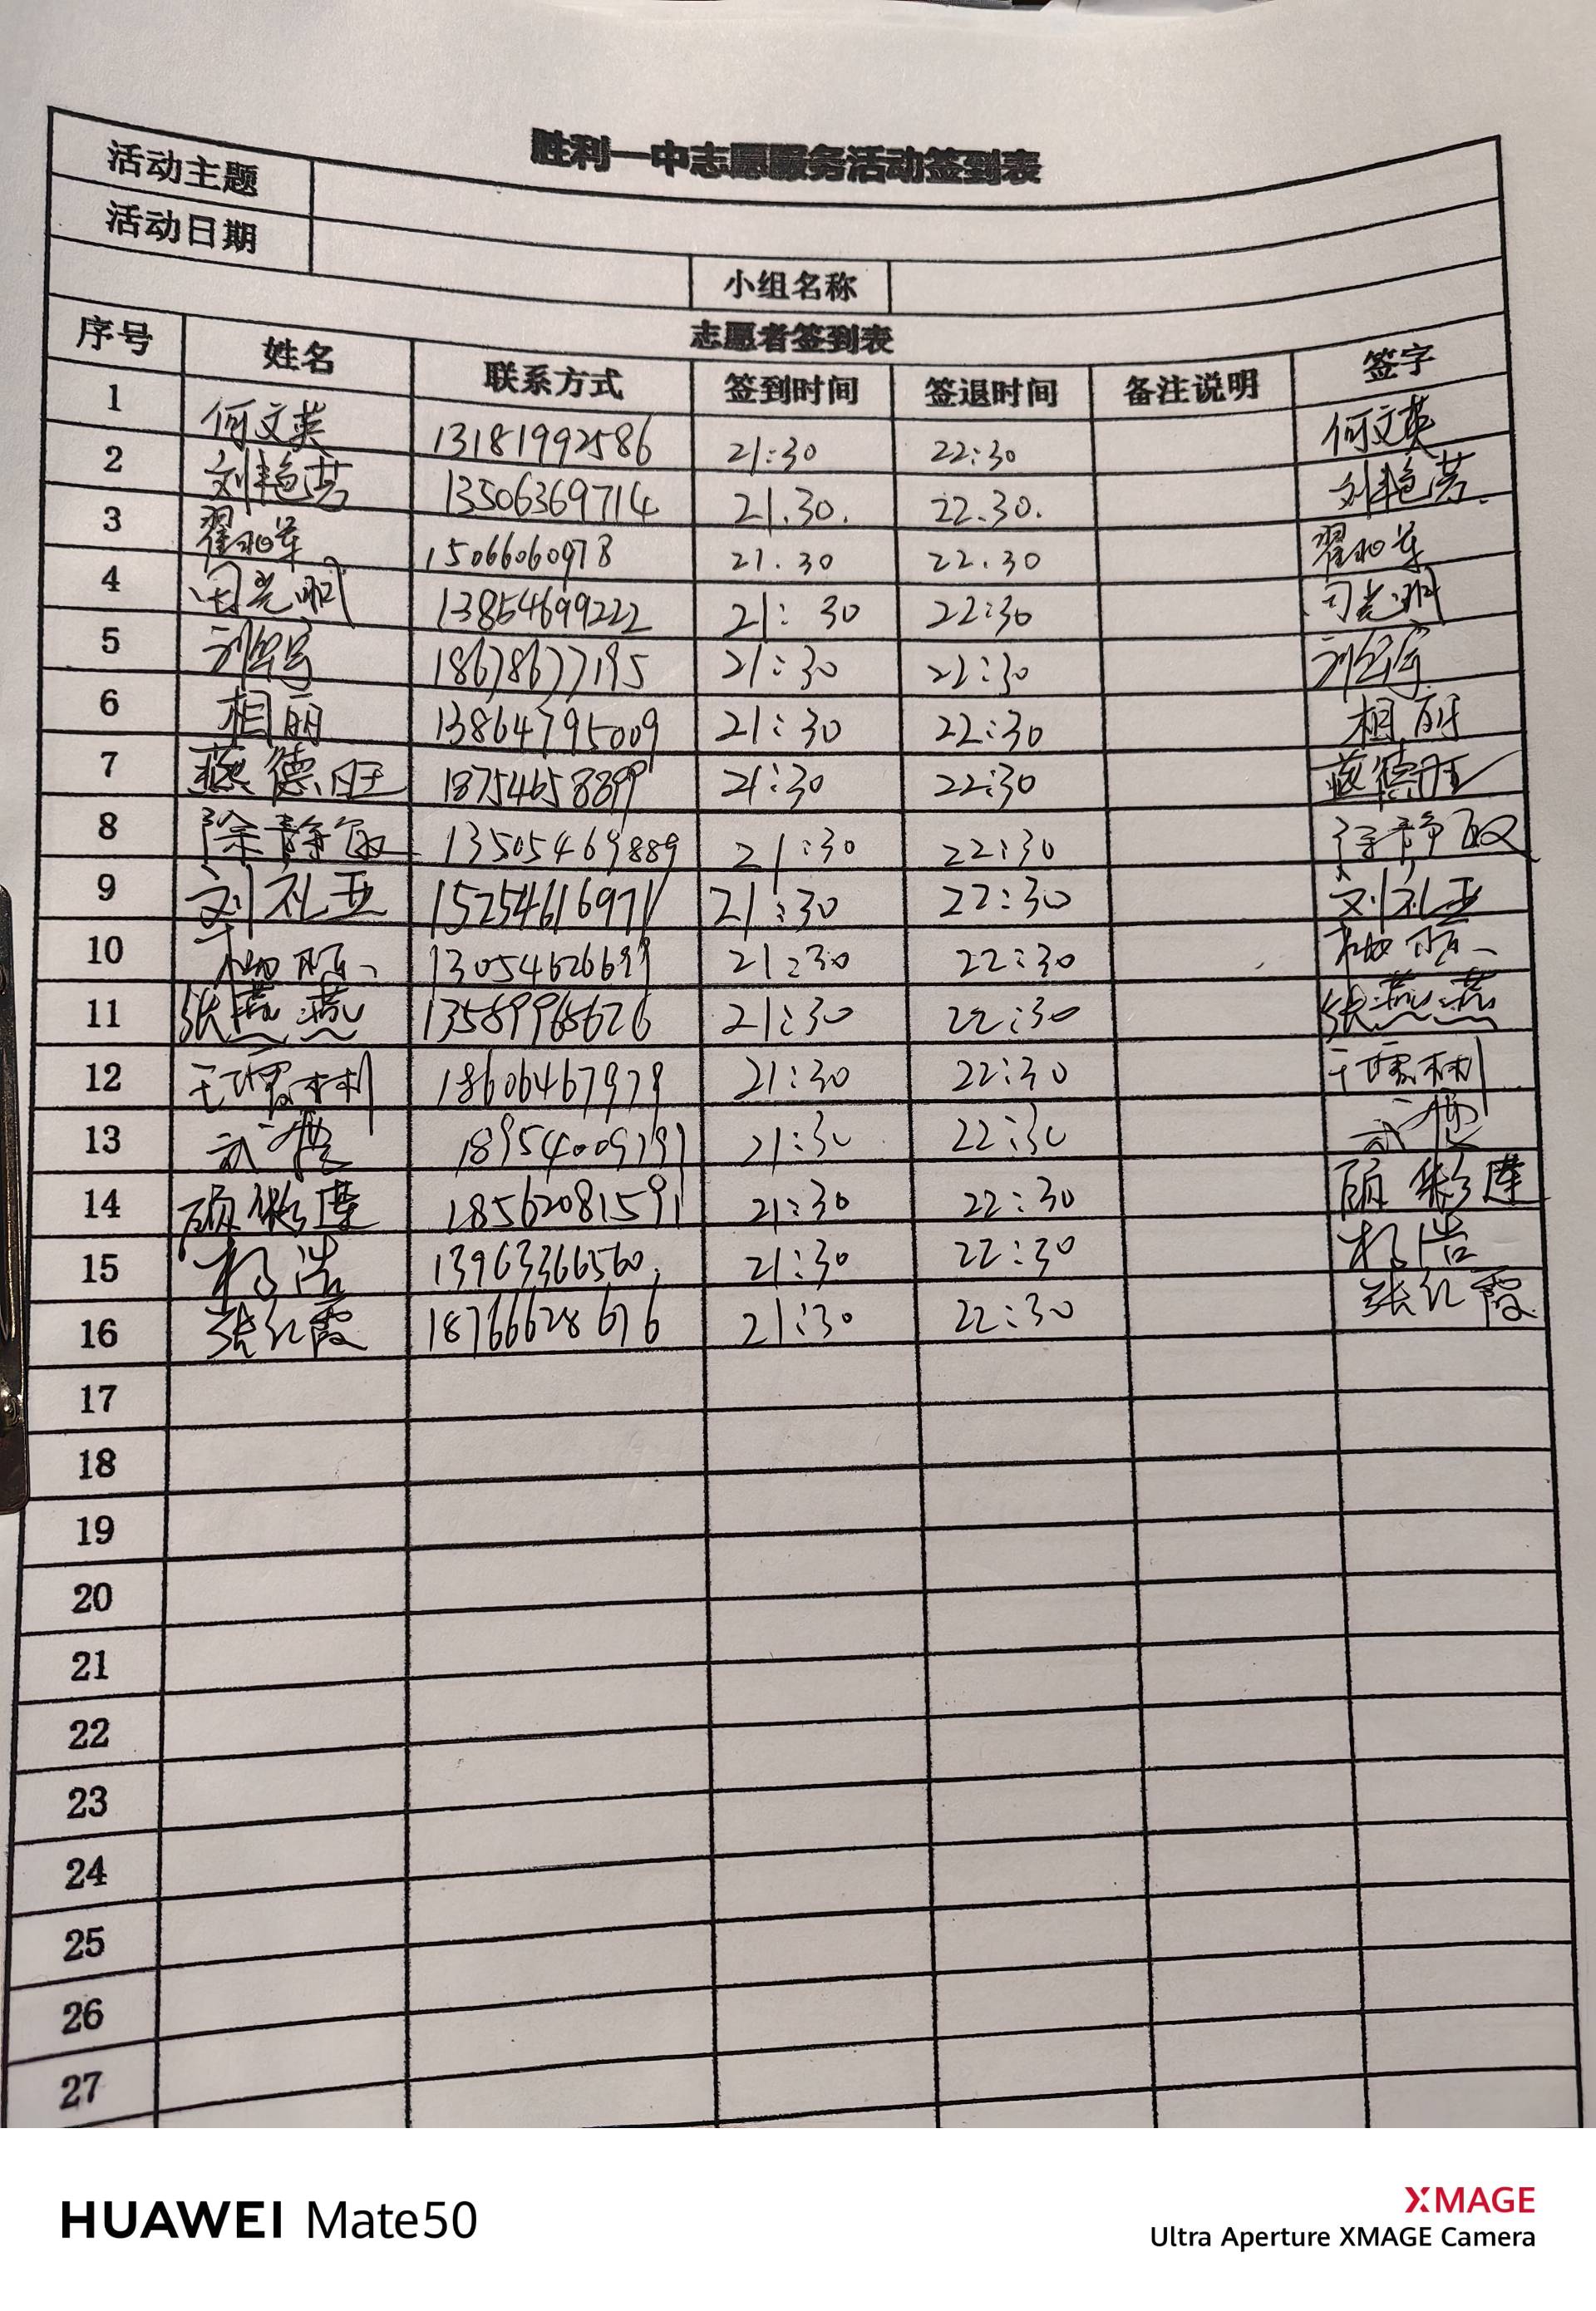 胜利一中志愿服务活动签到表
活动主题
活动日期
小组名称
志愿者签到表
序号 姓名 联系方式 签到时间 签退时间 备注说明 签字
1 何文英 13181992586 21:30 22:30 何文英
2 刘艳芳 13506369714 21.30. 22.30. 刘艳芳.
3 翟 15066060978 21.30 22.30 翟
4 光明 13854699222 21:30 22:30 光明
5 刘 18678677195 21:30 22:30 刘
6 相丽 13864795009 21:30 22:30 相丽
7 德旺 18754658399 21:30 22:30 德旺
8 徐静敏 13505469889 21:30 22:30 徐静敏
9 刘礼亚 15254616971 21:30 22:30 刘礼亚
10 13054626699 21:30 22:30
11 张燕燕 13589965626 21:30 22:30 张燕燕
12 18606467979 21:30 22:30
13 18954009191 21:30 22:30
14 顾彩莲 18562081591 21:30 22:30 顾彩莲
15 杨浩 13963366560. 21:30 22:30 杨浩
16 张红霞 18766628676 21:30 22:30 张红霞
17
18
19
20
21
22
23
24
25
26
27
HUAWEI Mate50
XMAGE
Ultra Aperture XMAGE Camera